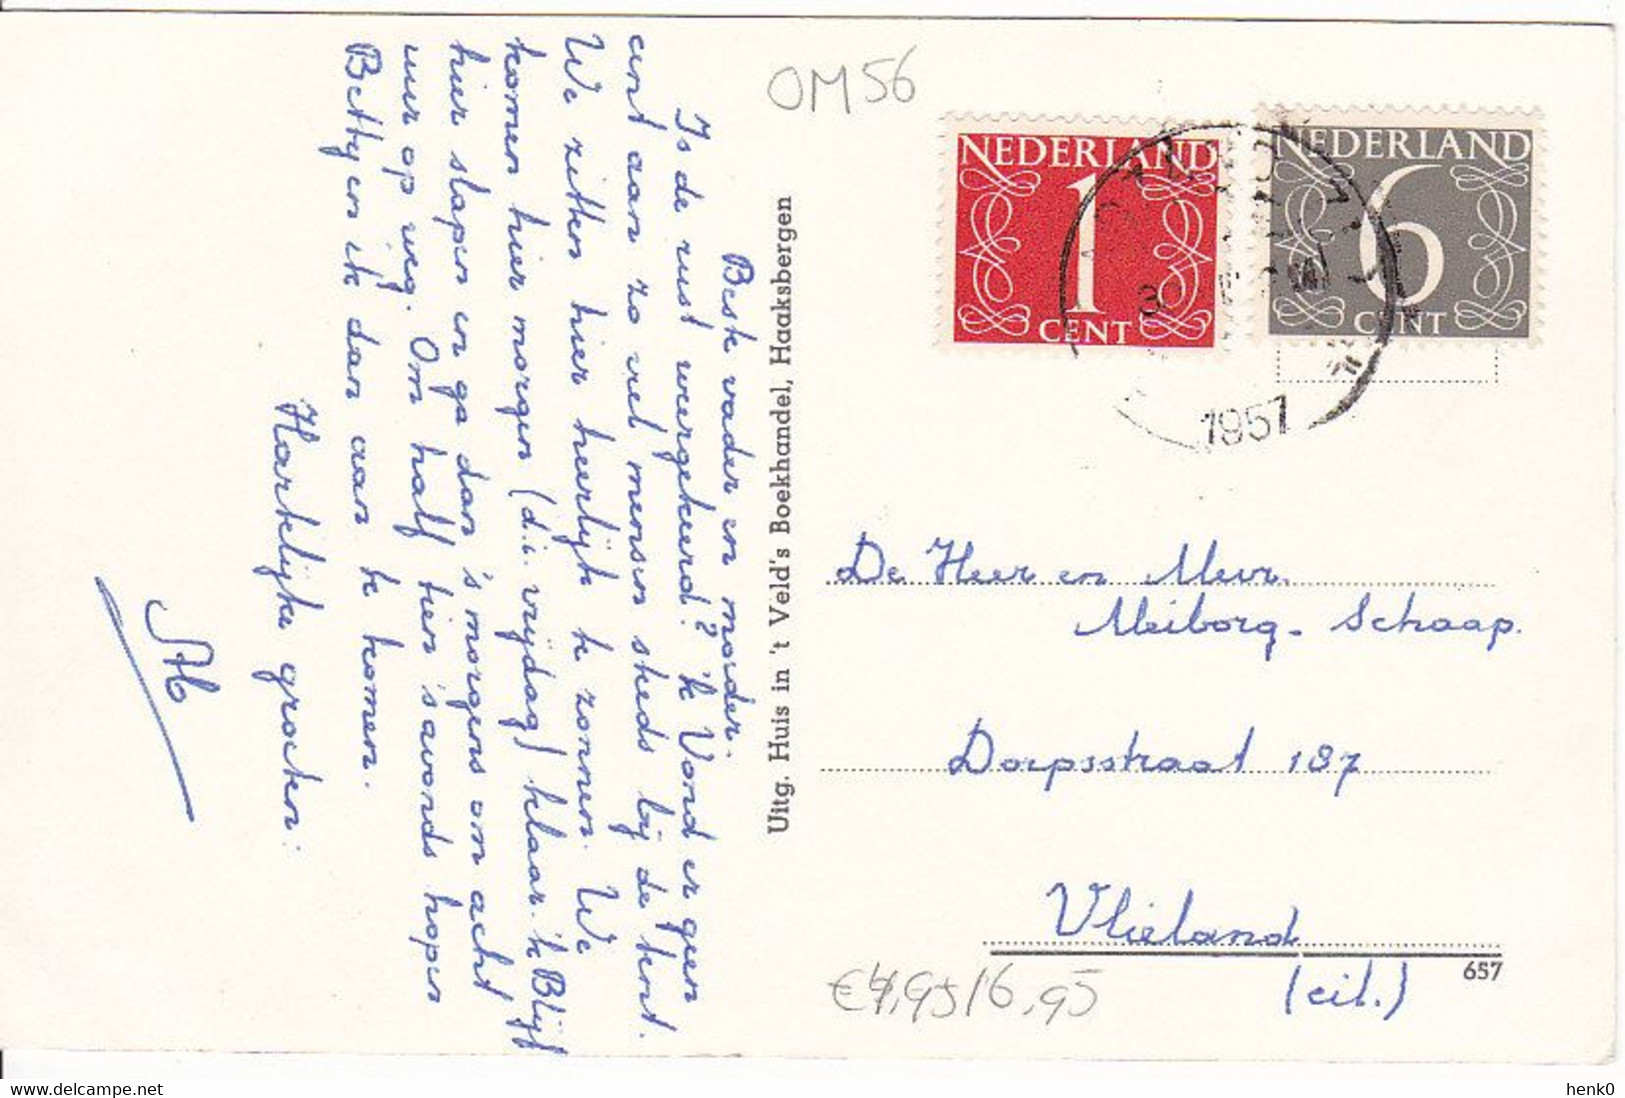 Beste vader en moeder.
Is de rust weergekeerd? 'k Vond er geen
cent aan zo veel mensen steeds bij de tent.
We zitten hier heerlijk te zonnen. We
komen hier morgen (d.i. vrijdag) klaar. 'k Blijf
hier slapen en ga dan 's morgens om acht
uur op weg. Om half tien 's avonds hopen
Betty en ik dan aan te komen.
Hartelijke groeten:
Uitg. Huis in 't Veld's Boekhandel, Haaksbergen
OM56
NEDERLAND
1
CENT
NEDERLAND
6
CENT
1957
De Heer en Mevr.
Meiborg-Schaap.
Dorpsstraat 187
Vlieland
(eil.)
657
€4,95/6,95
henk0